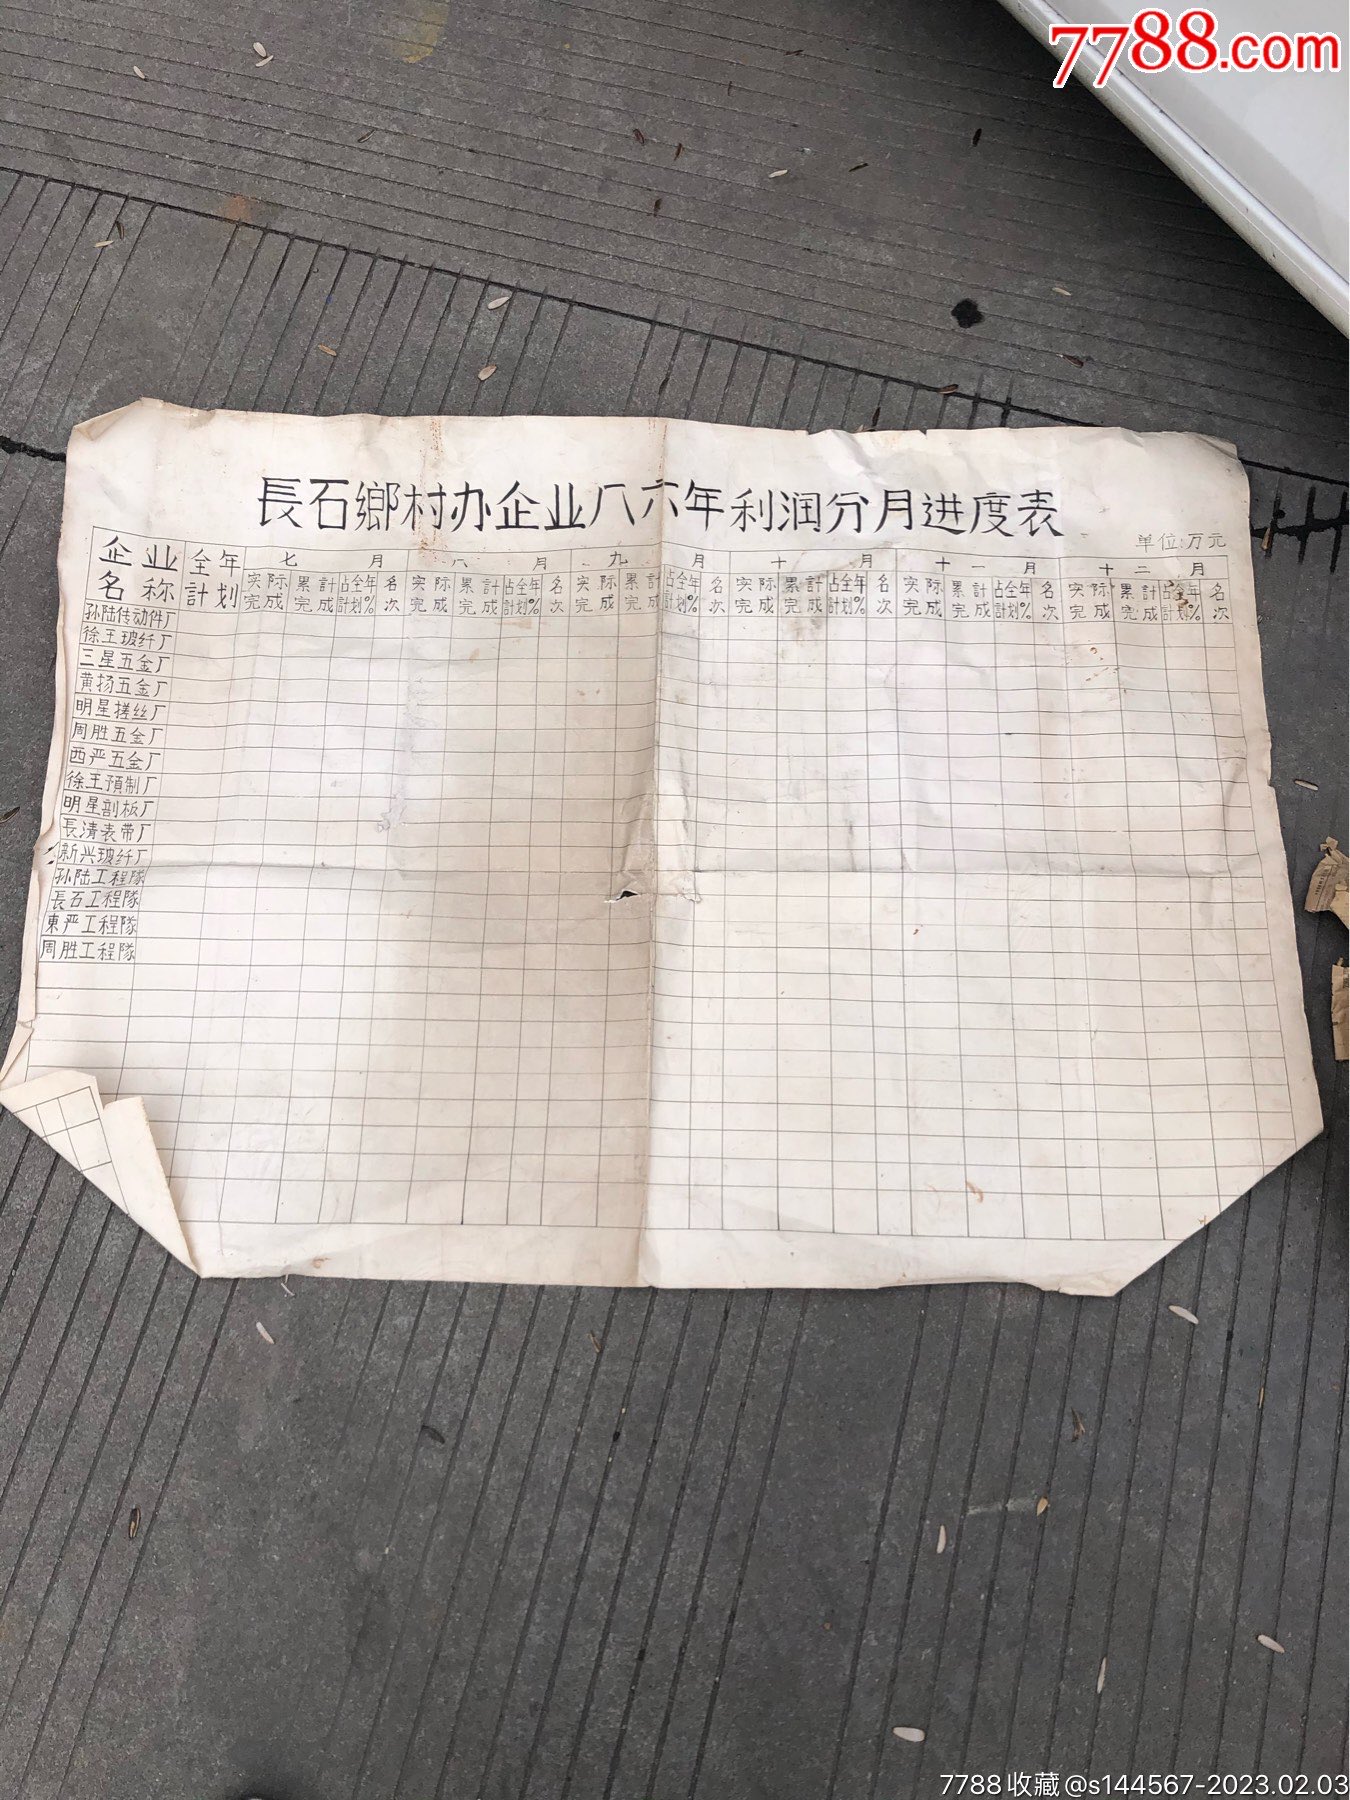 7788.com
長石鄉村办企业八六年利润分月进度表
单位:万元
企业名称 全年計划 七月 八月 九月 十月 十一月 十二月
实际完成 累計完成 占全年計划% 名次 实际完成 累計完成 占全年計划% 名次 实际完成 累計完成 占全年計划% 名次 实际完成 累計完成 占全年計划% 名次 实际完成 累計完成 占全年計划% 名次 实际完成 累計完成 占全年計划% 名次
孙陆传动件厂
徐王玻纤厂
三星五金厂
黄扬五金厂
明星搓丝厂
周胜五金厂
西严五金厂
徐王預制厂
明星剖板厂
長清表带厂
新兴玻纤厂
孙陆工程隊
長石工程隊
東严工程隊
周胜工程隊
7788收藏@s144567-2023.02.03